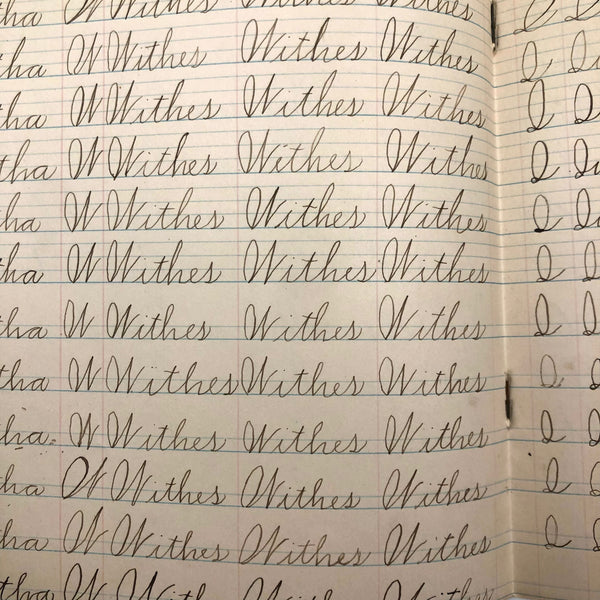 tha W Withes Withes Withes I
tha W Withes Withes Withes I
tha W Withes Withes Withes I
tha W Withes Withes Withes I
tha W Withes Withes Withes I
tha W Withes Withes Withes I
tha W Withes Withes Withes I
tha W Withes Withes Withes I
tha W Withes Withes Withes I
tha W Withes Withes Withes I
tha W Withes Withes Withes I
tha W Withes Withes Withes